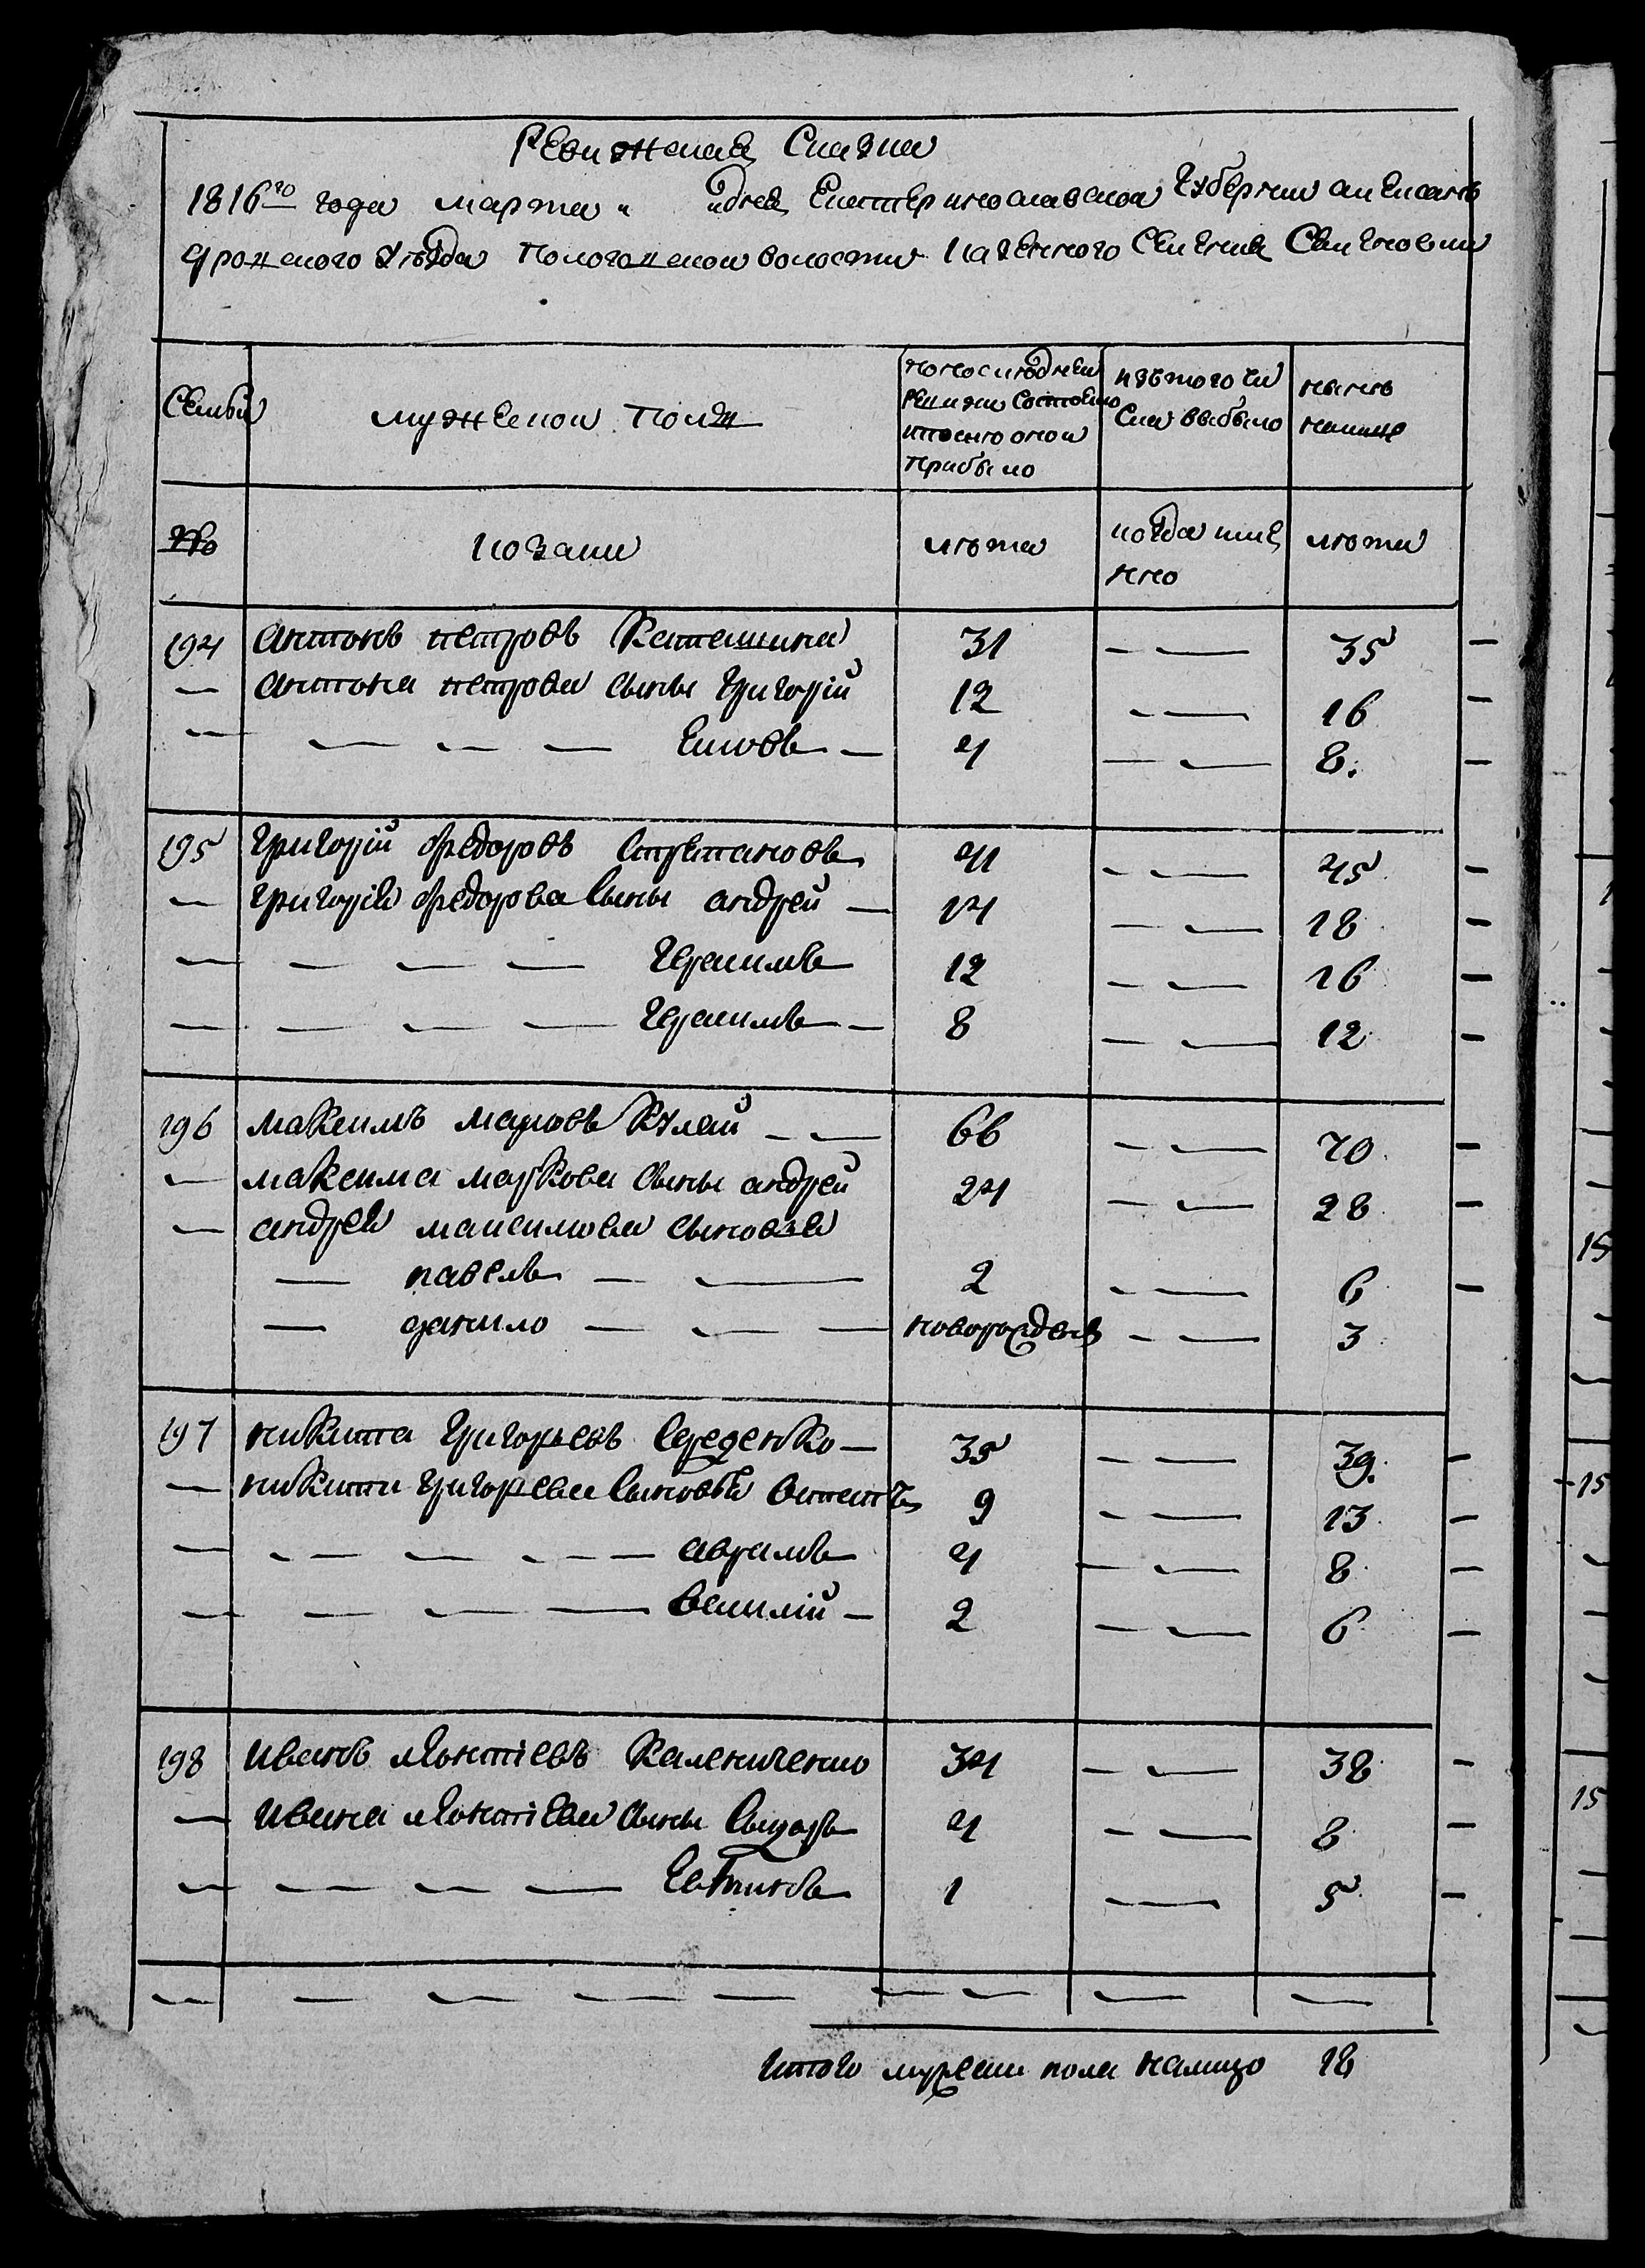 Ревижская Сказка
1816го года марта " " дня Екатеринославской Губернии Александ
ровского уезда Пологовской волости Казенного Селения
Семьи
мужеской пол
По последней
ревизии состояло
и после оной
прибыло
Изь того чи
сла выбыло
ныне
на лицо
№
козаки
лета
когда имен
но
лета
194 Антонъ Петровъ 31 — — 35 —
— Антона Петрова сыны Григорій 12 — — 16 —
— — — — Яковъ — 4 — — 8. —
195 Григорій Федоровъ 41 — — 45 —
— Григорія Федорова сыны Андрей — 14 — — 18 —
— — — — Герасимъ 12 — — 16 —
— — — — Герасимъ — 8 — — 12 —
196 Максимъ Марковъ Кулай — — 66 — — 70 —
— Максима Маркова сыны Андрей 24 — — 28 —
— Андрея Максимова сыновья
— Павелъ — — 2 — — 6 —
— Данило — — — новорожденъ — — 3
197 Никита Григорьевъ Середенко — 35 — — 39. —
— Никиты Григорьева сыновья 9 — — 13 —
— — — — — — Аврамъ 4 — — 8 —
— — — — Василій — 2 — — 6 —
198 Иванъ Леонтіевъ Калениченко 34 — — 38 —
— Ивана Леонтіева сыны Сидоръ 4 — — 8 —
— — — — 1 — 5 —
— — — — — — — — —
Итого мужеска пола налицо 18
15
15
15